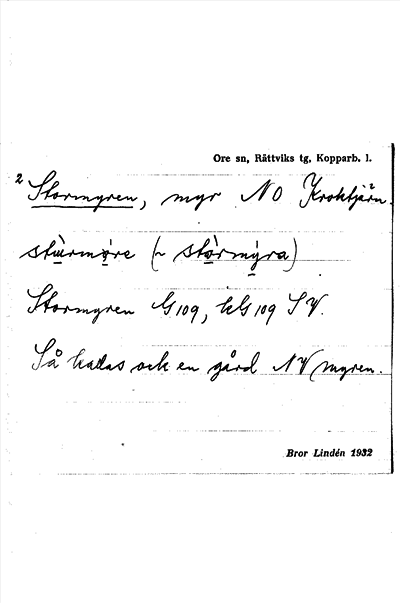 Ore sn, Rättviks tg, Kopparb. l.
2 Stormyren, myr NO Kroktjärn.
stùrmỳre (~ stòrmýra)
Stormyren G109, kG 109 SV.
Så kallas ock en gård NV myren.
Bror Lindén 1932